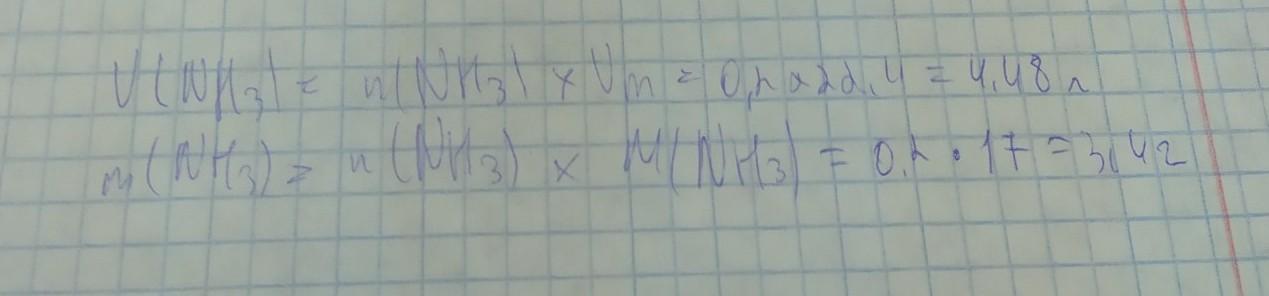 V(NH₃) = n(NH₃) × Vm = 0,2 × 22,4 = 4,48 л
m(NH₃) = n(NH₃) × M(NH₃) = 0,2 • 17 = 3,4 г